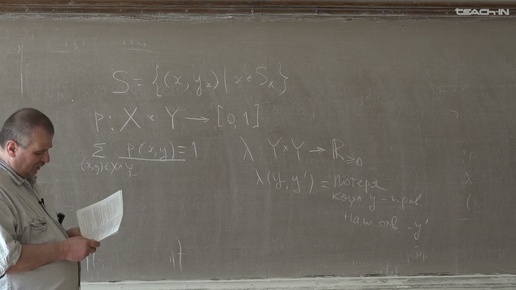 TEACH-IN
S = {(x, yₓ) | x ∈ Sₓ}
p : X × Y → [0, 1]
∑ p(x, y) = 1
(x,y)∈X×Y
λ Y×Y → ℝ≥0
λ(y, y') = потеря
когда y - прав
наш отв - y'